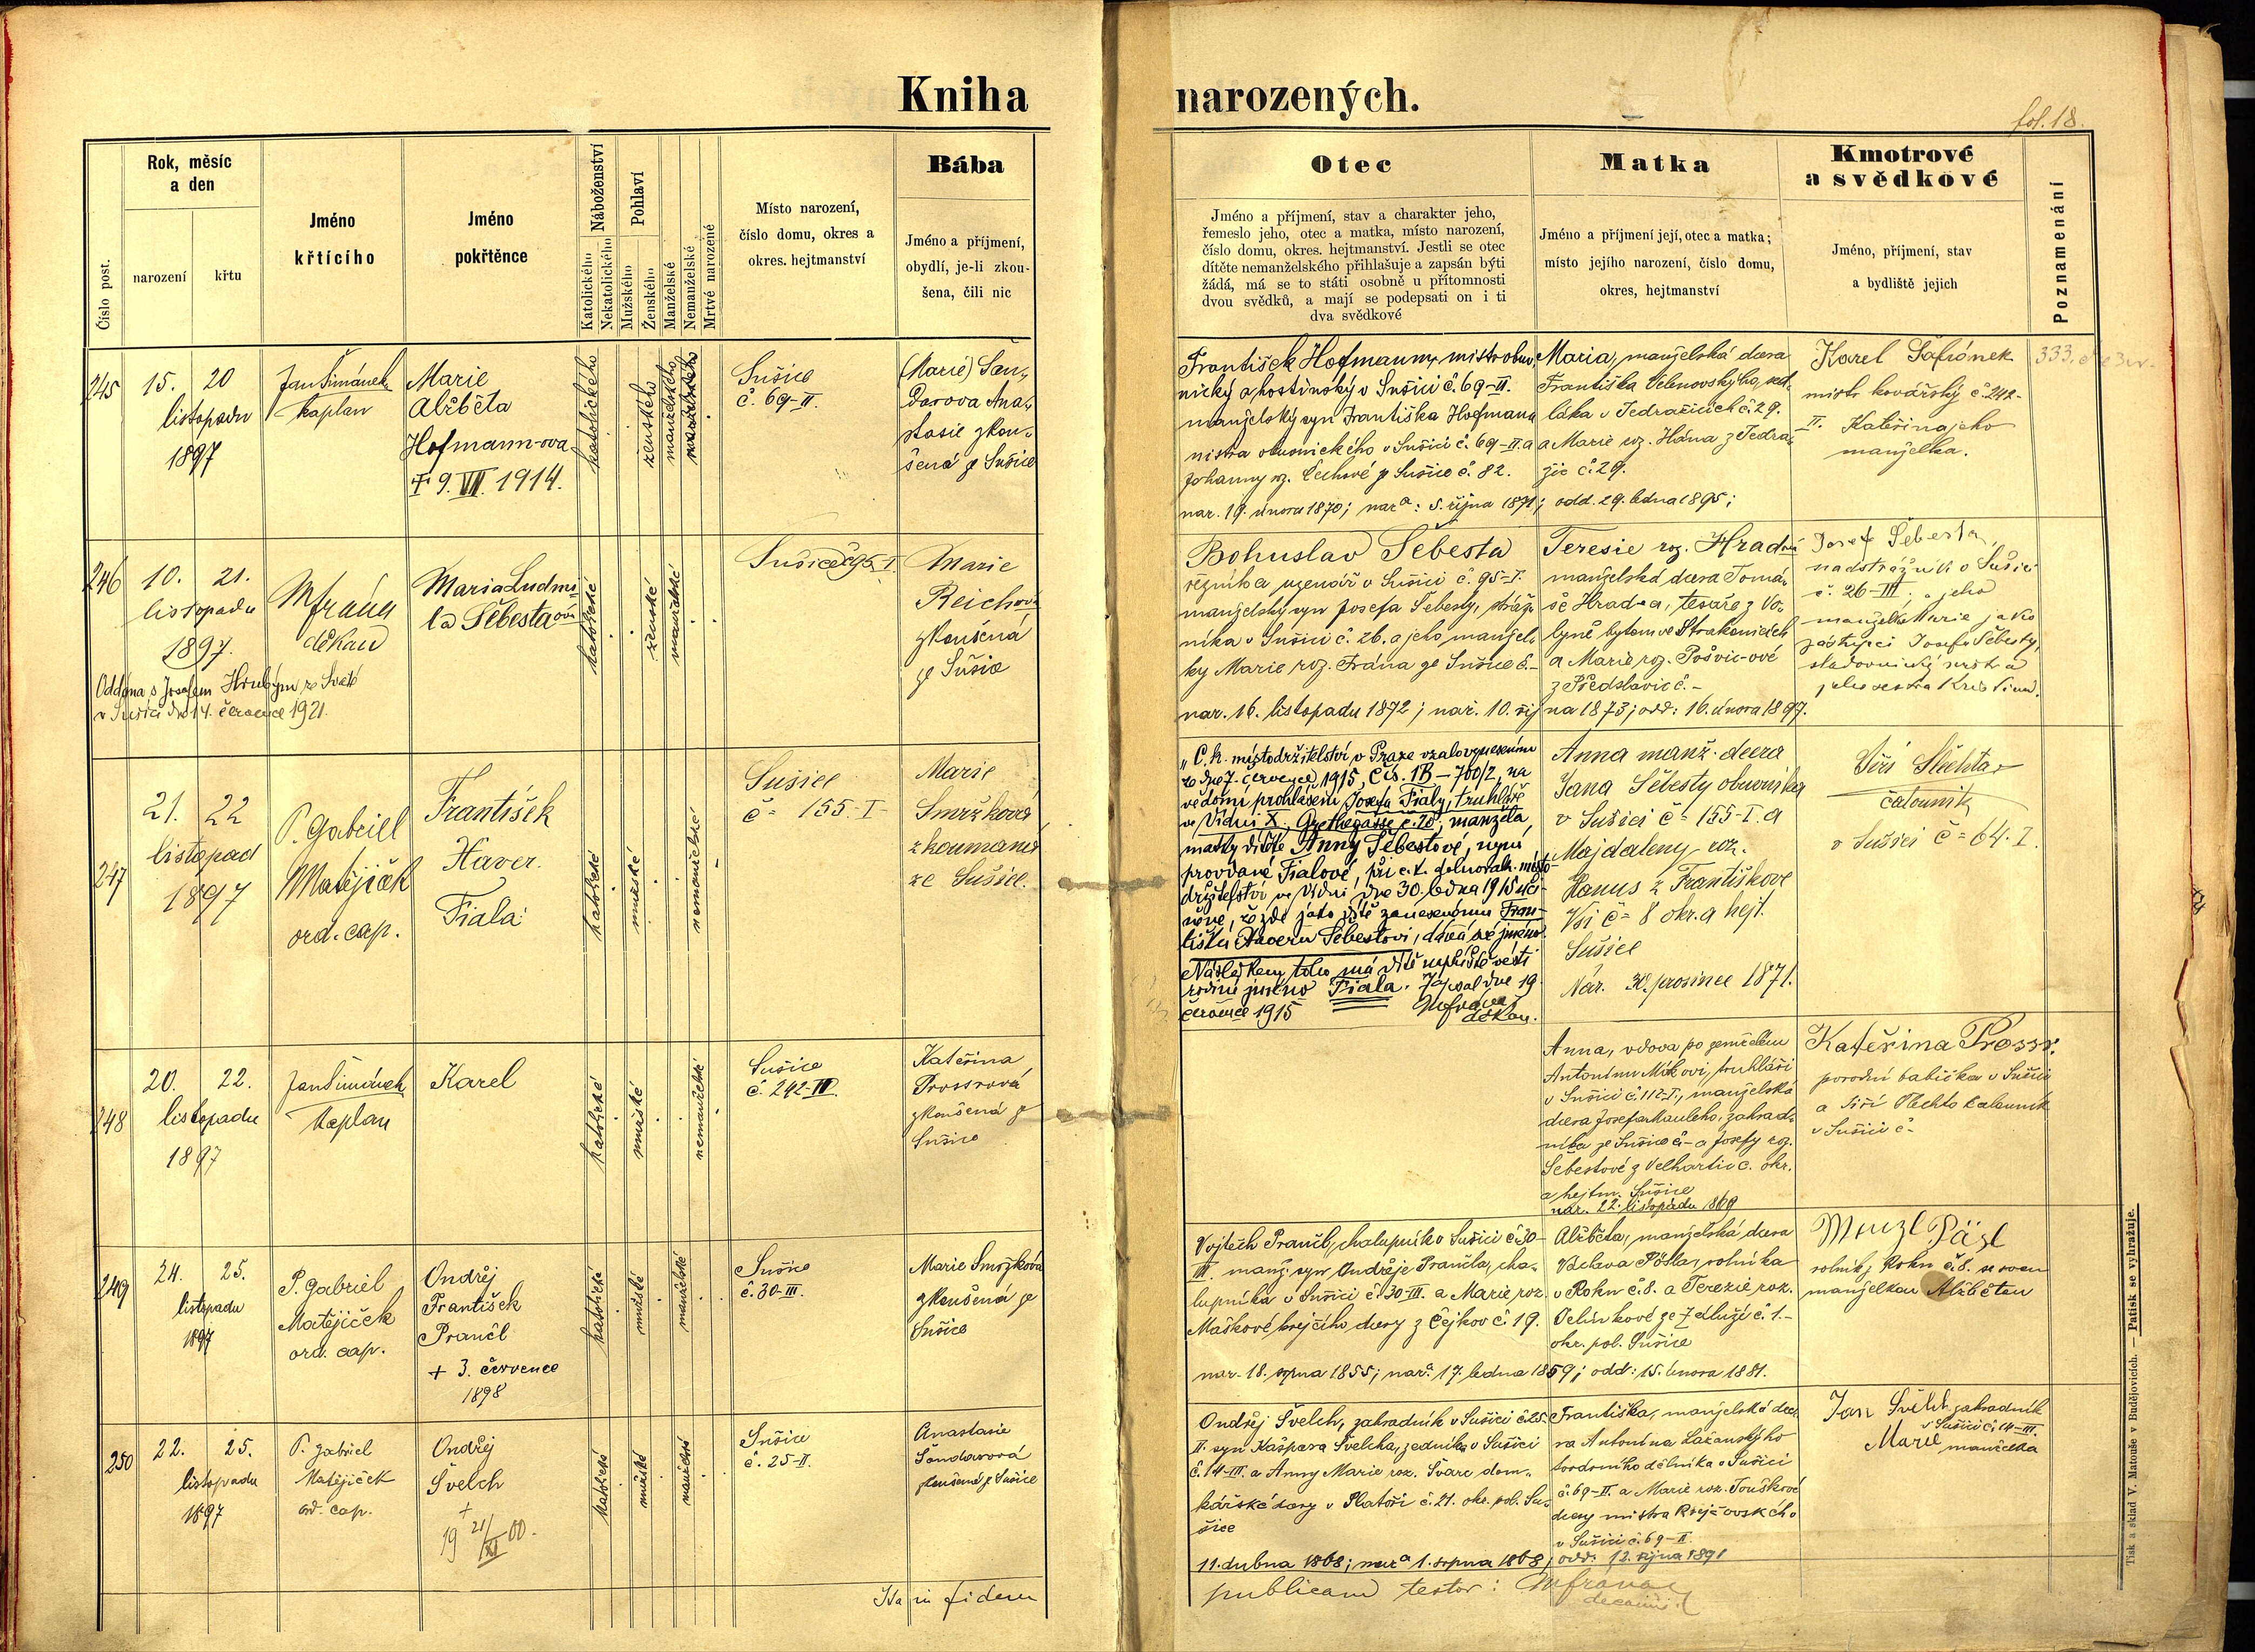 Kniha narozených.
fol. 18.
Číslo post.
Rok, měsíc
a den
narození
křtu
Jméno
křtícího
Jméno
pokřtěnce
Náboženství
Katolického
Nekatolického
Pohlaví
Mužského
Ženského
Manželské
Nemanželské
Mrtvé narozené
Místo narození,
číslo domu, okres a
okres. hejtmanství
Bába
Jméno a příjmení,
obydlí, je-li zkou-
šena, čili nic
Otec
Jméno a příjmení, stav a charakter jeho,
řemeslo jeho, otec a matka, místo narození,
číslo domu, okres. hejtmanství. Jestli se otec
dítěte nemanželského přihlašuje a zapsán býti
žádá, má se to státi osobně u přítomnosti
dvou svědků, a mají se podepsati on i ti
dva svědkové
Matka
Jméno a příjmení její, otec a matka;
místo jejího narození, číslo domu,
okres, hejtmanství
Kmotrové
a svědkové
Jméno, příjmení, stav
a bydliště jejich
Poznamenání
245
15. 20
listopadu
1897
Jan Šimánek
kaplan
Marie
Alžběta
Hofmann-ova
† 9. VII. 1914.
katolického
ženského
manželského
Sušice
č. 69-II.
(Marie) Šan-
darova Ana-
stasie zkou-
šená ze Sušice
František Hofmann, mistr obuv-
nický a hostinský v Sušici č. 69-II.
manželský syn Františka Hofmana
mistra obuvnického v Sušici č. 69-II. a
Johanny roz. Čechové ze Sušice č. 82.
nar. 19. února 1870; nar.a: 5. října 1871; odd. 29. ledna 1895;
Maria, manželská dcera
Františka Velenovského, sed-
láka v Jedražicích č. 29.
a Marie roz. Hána z Jedra-
žic č. 29.
Karel Šafránek
mistr kovářský č. 242-
II. Kateřina jeho
manželka.
246
10. 21.
listopadu
1897.
Mfráňa
děkan
Maria Ludmi-
la Šebesta ová
katolické
ženské
manželské
Sušice č. 95. I.
Marie
Reichová
zkoušená
ze Sušic
Oddána s Josefem Hrubým ze Svaté
v Sušici dne 14. července 1921.
Bohuslav Šebesta
řezník a uzenář v Sušici č. 95-I.
manželský syn Josefa Šebesty, stráž-
níka v Sušici č. 26. a jeho manžel-
ky Marie roz. Frána ze Sušice č. -
nar. 16. listopadu 1872; nar. 10. říj na 1873; odd: 16. února 1897.
Teresie roz. Hradní
manželská dcera Tomá-
še Hradna, tesaře z Vo-
lyně bytem ve Strakonicích
a Marie roz. Pošvic-ové
z Předslavic č. -
Josef Šebesta,
nadstrážník v Sušici
č. 26-III. a jeho
manželka Marie jako
zástupci Josefa Šebesty,
sladovnický mistr a
jeho sestra Kristina.
247
21. 22
listopad
1897
P. Gabriel
Matějíček
ord. cap.
František
Xaver.
Fiala
katolické
mužské
nemanželské
Sušice
č= 155-I
Marie
Smržková
zkoumaná
ze Sušice.
„C. k. místodržitelství v Praze vzalo vynesením
ze dne 7. července 1915, čís. 1B-700/2, na
vědomí prohlášení Josefa Fialy, truhláře
ve Vídni X., Goethegasse č. 20, manžela
matky dítěte Anny Šebestové, nyní
provdané Fialové, při c. k. dolnorak. místo-
držitelství ve Vídni dne 30. ledna 1915 uči-
něné, že zde jako dítě zanesenému Fran-
tišku Xaveru Šebestovi, dává své jméno.
Následkem toho má dítě napříště vésti
rodinné jméno Fiala. Zapsal dne 19.
července 1915 Mfráňa
děkan.
Anna manž. dcera
Jana Šebesty obuvníka
v Sušici č= 155-I. a
Majdaleny roz.
Hanus z Františkove
Vsi č= 8 okr. a hejt.
Sušice
Nar. 30. prosince 1871.
Jiří Šlechta
čalouník
v Sušici č= 64. I.
248
20. 22.
listopadu
1897
Jan Šimánek
kaplan
Karel
katolické
mužské
nemanželské
Sušice
č. 242-II.
Kateřina
Prossrová
zkoušená ze
Sušice
Anna, vdova po zemřelém
Antonínu Míkovi, truhláři
v Sušici č. 112-I., manželská
dcera Josefa Mauleho, zahrad-
níka ze Sušice č- a Josefy roz.
Šebestové z Velhartic č. okr.
a hejtm. Sušice
nar. 22. listopadu 1869
Kateřina Prossr.
porodní babička v Sušici
a Jiří Šlechta čalouník
v Sušici č-
249
24. 25.
listopadu
1897
P. Gabriel
Matějíček
ord. cap.
Ondřej
František
Prančl
+ 3. července
1898
katolické
mužské
manželské
Sušice
č. 30-III.
Marie Smržková
zkoušená ze
Sušice
Vojtěch Prančl, chalupník v Sušici č. 30-
III. manž. syn Ondřeje Prančla, cha-
lupníka v Sušici č. 30-III. a Marie roz.
Maškové krejčího dcery z Čejkov č. 19.
nar. 18. srpna 1855; nar.a 17. ledna 1859; odd: 15. února 1881.
Alžběta, manželská dcera
Václava Pösla, rolníka
v Rokn č. 8. a Terezie roz.
Velínkové ze Zdluží č. 1.-
okr. pol. Sušice
Wenzl Päsl
rolník z Rokn č. 8. se svou
manželkou Alžbětou
250
22. 25.
listopadu
1897
P. Gabriel
Matějíček
ord. cap.
Ondřej
Švelch
+
19 21/XI 00.
katolické
mužské
manželské
Sušice
č. 25-II.
Anastasie
Šandarová
zkoušená ze Sušice
Ondřej Švelch, zahradník v Sušici č. 25.
II. syn Kašpara Švelcha, zedníka v Sušici
č. 14-III. a Anny Marie roz. Švarc dom-
kářské dcery v Platoři č. 21. okr. pol. Su-
šice
11. dubna 1868; nar.a 1. srpna 1868; odd. 12. října 1891
Františka, manželská dce-
ra Antonína Lažanského
továrního dělníka v Sušici
č. 69-II. a Marie roz. Touškové
dcery mistra krejčovského
v Sušici č. 69-II.
Jan Švelch zahradník
v Sušici č. 14-III.
Marie manželka
Ita in fidem publicam testor: Mfráňa
decanus
Tisk a sklad V. Matouše v Budějovicích. — Patisk se vyhražuje.